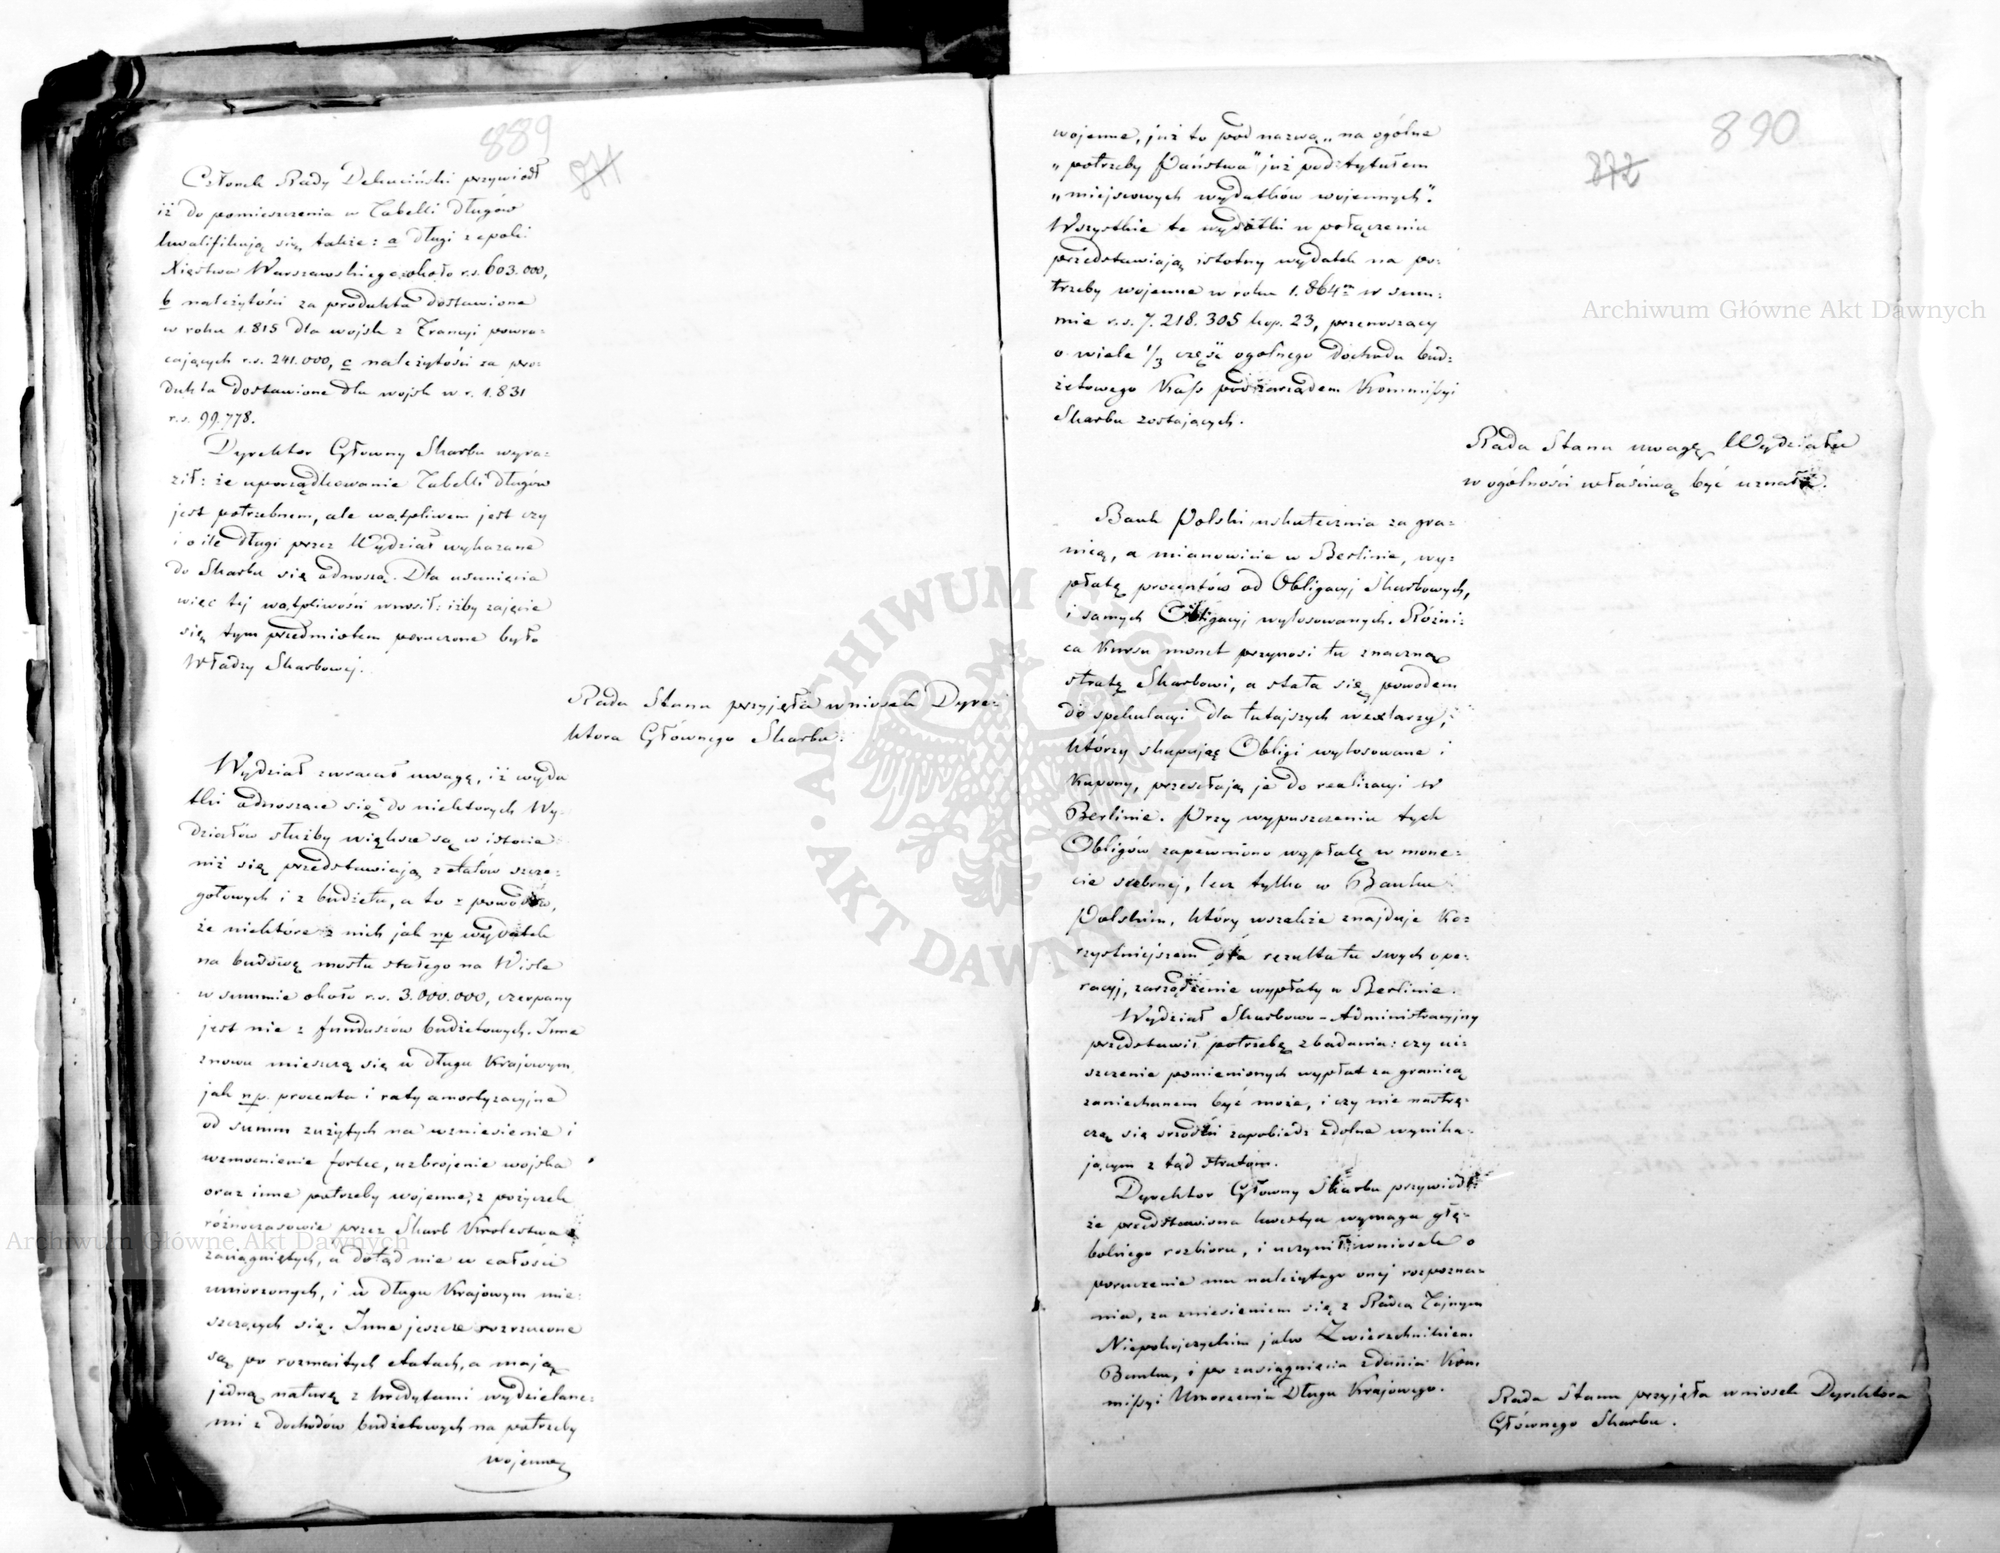 889
871
Członek Rady Dekuciński przywiódł
iż do pomieszczenia w Tabelli długów
kwalifikują się także: a długi z epoki
Xięstwa Warszawskiego około r.s. 603.000,
b należytości za produkta dostawione
w roku 1.815 dla wojsk z Francyi powra-
cających r.s. 241.000, c należytości za pro-
dukta dostawione dla wojsk w r. 1.831
r.s. 99.778.
Dyrektor Główny Skarbu wyra-
ził: że uporządkowanie Tabelli długów
jest potrzebnem, ale wątpliwem jest czy
i o ile długi przez Wydział wykazane
do Skarbu się odnoszą. Dla usunięcia
więc tej wątpliwości wnosił: iżby zajęcie
się tym przedmiotem poruczone było
Władzy Skarbowej.
Rada Stanu przyjęła wniosek Dyre-
ktora Głównego Skarbu.
Wydział zwracał uwagę, iż wyda
tki odnoszące się do niektorych Wy-
działów służby większe są w istocie
niż się przedstawiają z etatów szcze-
gołowych i z budżetu, a to z powodów,
że niektóre z nich jak np wydatek
na budowę mostu stałego na Wisle
w summie około r.s. 3.000.000, czerpany
jest nie z funduszów budżetowych. Inne
znowu mieszczą się w długu Krajowym
jak np. procenta i raty amortyzacyjne
od summ zużytych na wzniesienie i
wzmocnienie fortec, uzbrojenie wojska
oraz inne potrzeby wojenne, z pożyczek
różnoczasowie przez Skarb Krolestwa
zaciągniętych, a dotąd nie w całości
umorzonych, i w długu Krajowym mie-
szczących się. Inne jeszcze rozrzucone
są po rozmaitych etatach, a mają
jedną naturę z kredytami wydzielane-
mi z dochodów budżetowych na potrzeby
wojenne
890
872
wojenne, już to pod nazwą „na ogólne
„potrzeby Państwa" już pod tytułem
„miejscowych wydatków wojennych".
Wszystkie te wydatki w połączeniu
przedstawiają istotny wydatek na po-
trzeby wojenne w roku 1.864m w sum-
mie r.s. 7.218.305 kop. 23, przenoszący
o wiele 1/3 część ogolnego dochodu bud-
żetowego Kass pod zarządem Kommissyi
Skarbu zostających.
Rada Stanu uwagę Wydziału
w ogólności właściwą być uznała.
Bank Polski uskutecznia za gra-
nicą, a mianowicie w Berlinie, wy-
płatę procentów od Obligacyj Skarbowych,
i samych Obligacyj wylosowanych. Różni-
ca Kursu monet przynosi tu znaczną
stratę Skarbowi, a stała się powodem
do spekulacyi dla tutajszych wexlarzy,
którzy skupując Obligi wylosowane i
Kupony, przesełają je do realizacyi w
Berlinie. Przy wypuszczeniu tych
Obligów zapewniono wypłatę w mone-
cie srebrnej, lecz tylko w Banku
Polskim, który wszakże znajduje Ko-
rzystniejszem dla rezultatu swych ope-
racyj, zarządzenie wypłaty w Berlinie.
Wydział Skarbowo-Administracyjny
przedstawił potrzebę zbadania: czy ui-
szczenie pomienionych wypłat za granicą
zaniechanem być może, i czy nie nastrę-
czą się srodki zapobiedz zdolne wynika-
jącym z tąd stratom.
Dyrektor Główny Skarbu przywiódł:
że przedstawiona kwestya wymaga głę-
bokiego rozbioru, i uczynił wniosek o
poruczenie mu należytego onej rozpozna-
nia, za zniesieniem się z Radcą Tajnym
Niepokojczyckim jako Zwierzchnikiem
Banku, i po zasiągnięciu zdania Kom-
missyi Umorzenia Długu Krajowego.
Rada Stanu przyjęła wniosek Dyrektora
Głównego Skarbu.
Archiwum Główne Akt Dawnych
Archiwum Główne Akt Dawnych
ARCHIWUM GŁÓWNE AKT DAWNYCH